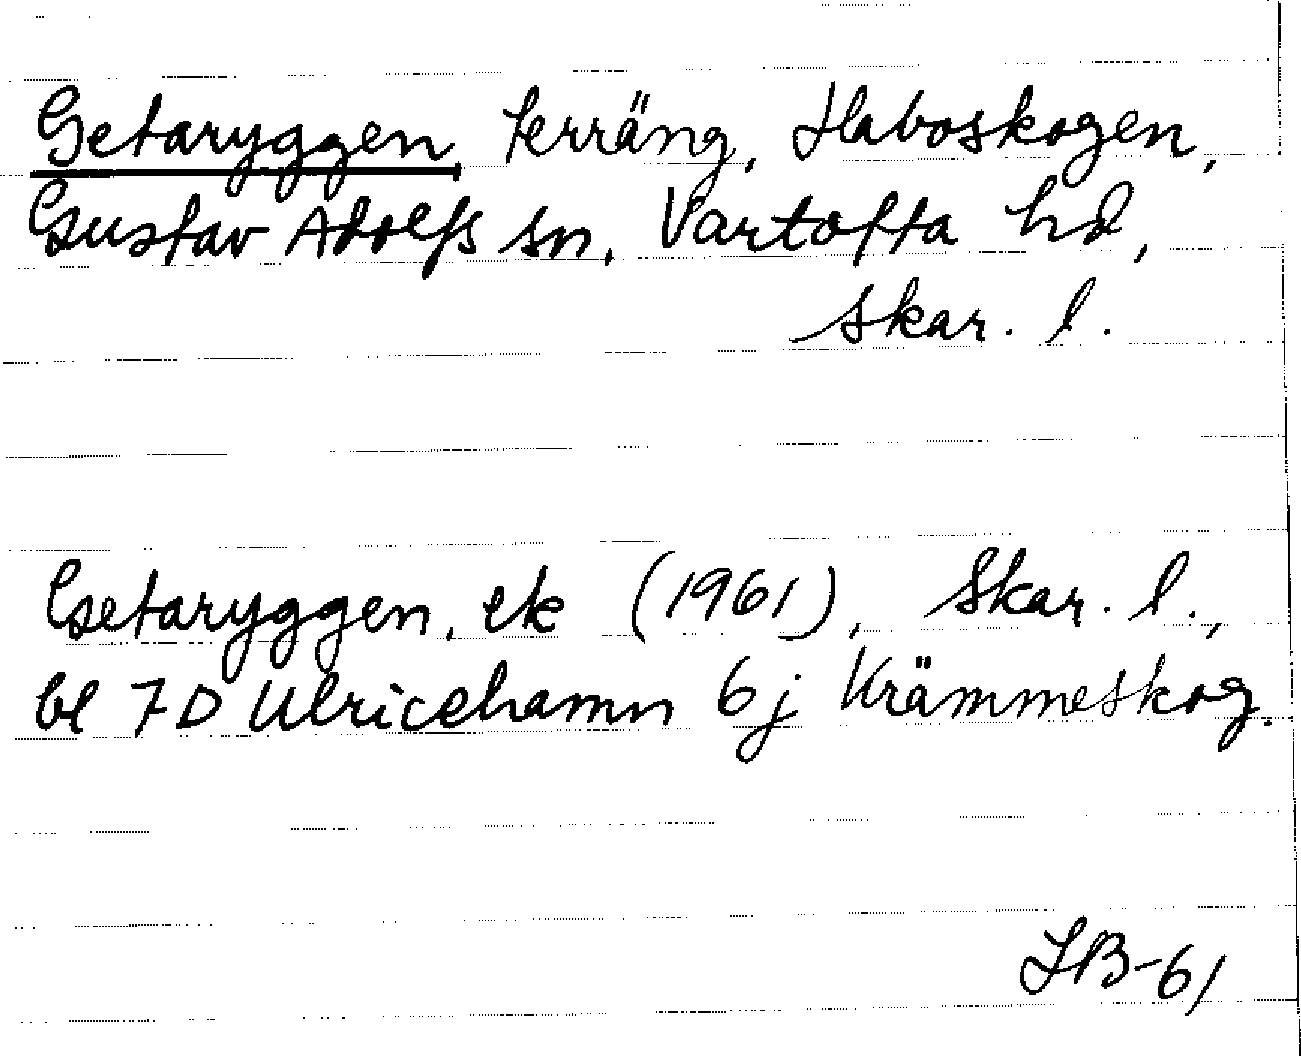 Getaryggen, terräng, Haboskogen,
Gustav Adolfs sn, Vartofta hd,
Skar. l.
Getaryggen, ek (1961), Skar. l.,
bl 7D Ulricehamn 6j Krämmeskog.
LB-61